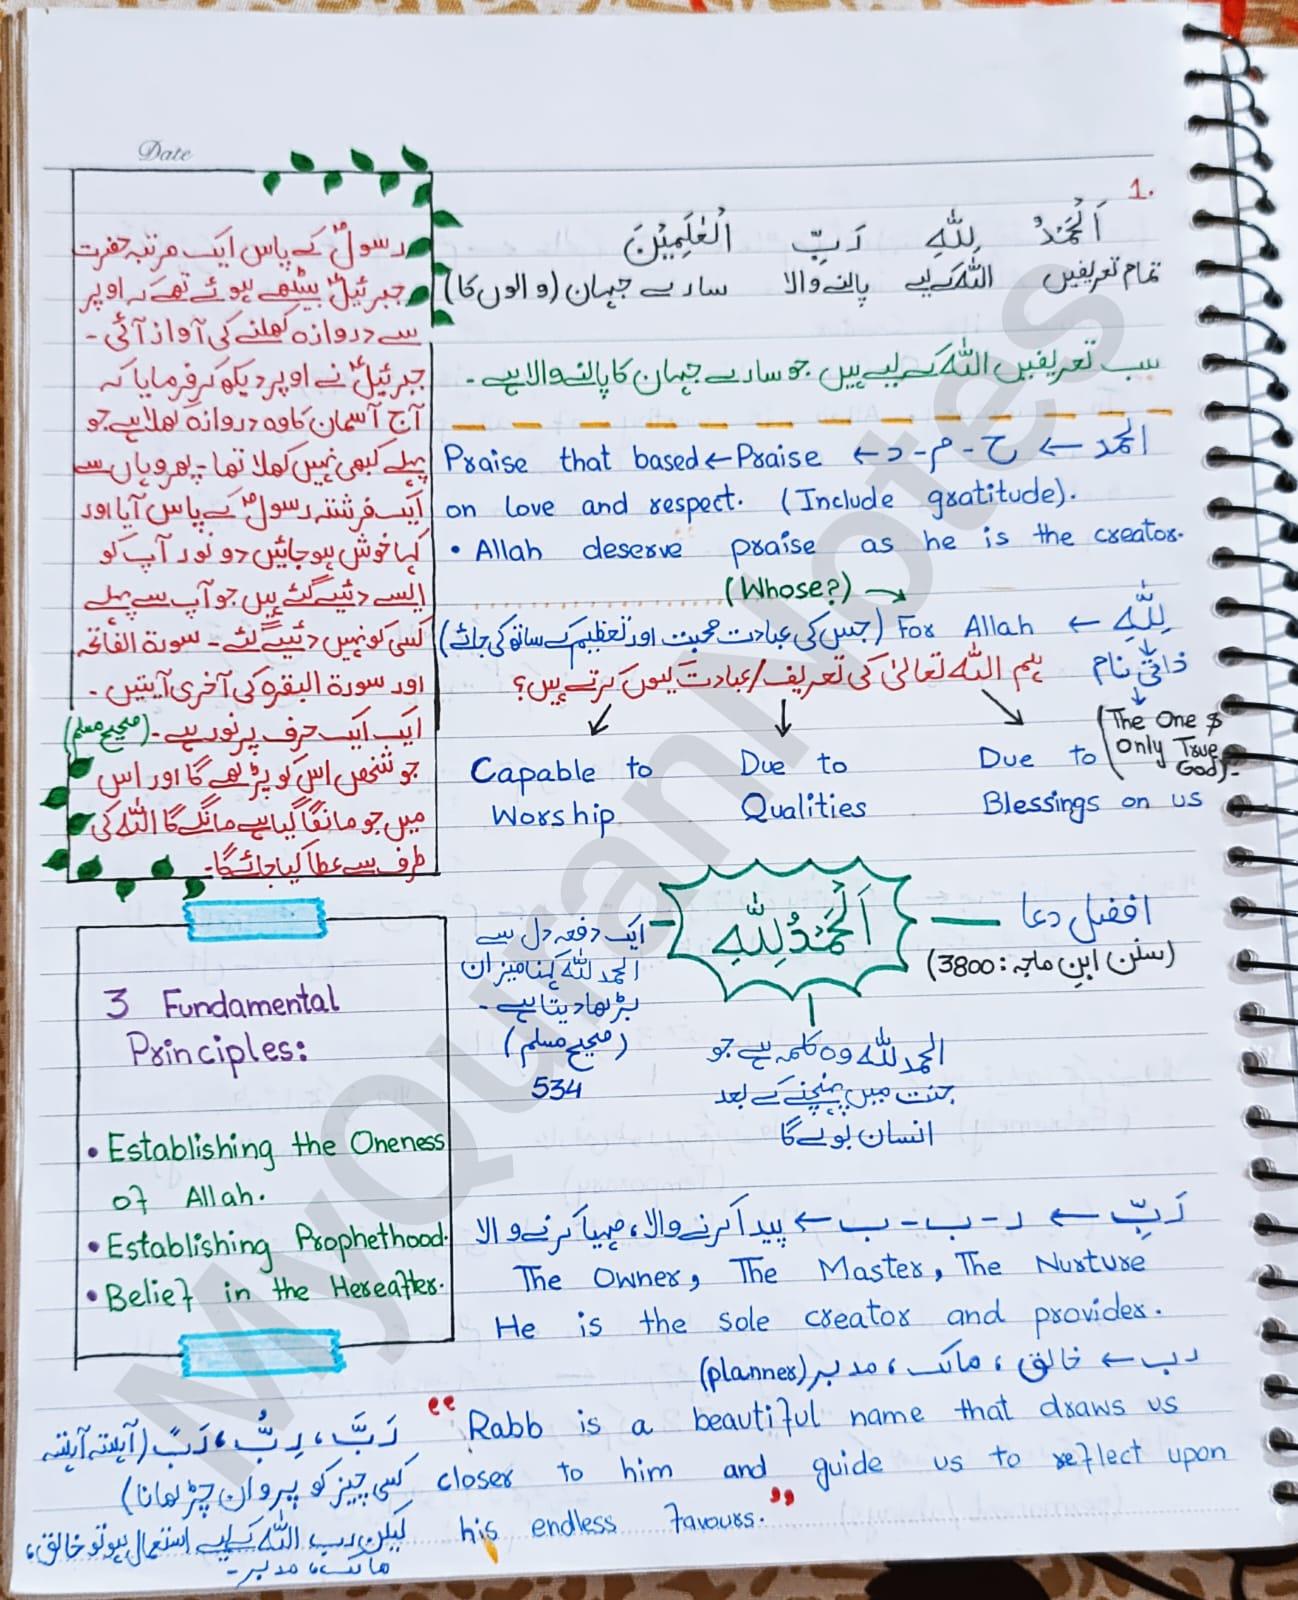 Date
1.
اَلْحَمْدُ لِلّٰهِ رَبِّ الْعٰلَمِيْنَ
تمام تعریفیں اللہ کےلیے پالنے والا سارے جہان (والوں کا)
سب تعریفیں اللہ کے لیے ہیں جو سارے جہان کا پالنے والا ہے۔
الحمد ← ح - م - د ← Praise ← Praise that based
on love and respect. (Include gratitude).
• Allah deserve praise as he is the creator.
(Whose?)
لِلّٰهِ ← For Allah (جس کی عبادت محبت اور تعظیم کے ساتھ کی جائے)
ذاتی نام
(The One & Only True God)
ہم اللہ تعالیٰ کی تعریف/عبادت کیوں کرتے ہیں؟
Capable to Worship
Due to Qualities
Due to Blessings on us
رسولؐ کے پاس ایک مرتبہ حضرت
جبرئیلؑ بیٹھے ہوئے تھے کہ اوپر
سے دروازہ کھلنے کی آواز آئی۔
جبرئیلؑ نے اوپر دیکھ کر فرمایا کہ
آج آسمان کا وہ دروازہ کھلا ہے جو
پہلے کبھی نہیں کھلا تھا۔ پھر وہاں سے
ایک فرشتہ رسولؐ کے پاس آیا اور
کہا خوش ہو جائیں دو نور آپ کو
ایسے دئیے گئے ہیں جو آپ سے پہلے
کسی کو نہیں دئیے گئے۔ سورۃ الفاتحہ
اور سورۃ البقرہ کی آخری آیتیں۔
ایک ایک حرف پر نور ہے۔ (صحیح مسلم)
جو شخص اس کو پڑھے گا اور اس
میں جو مانگا گیا ہے مانگے گا اللہ کی
طرف سے عطا کیا جائے گا۔
اَلْحَمْدُ لِلّٰهِ
افضل دعا
(سنن ابنِ ماجہ: 3800)
ایک دفعہ دل سے
الحمد للّٰہ کہنا میزان
بڑھا دیتا ہے۔
(صحیح مسلم)
534
الحمد للّٰہ وہ کلمہ ہے جو
جنت میں پہنچنے کے بعد
انسان بولے گا
3 Fundamental
Principles:
• Establishing the Oneness
of Allah.
• Establishing Prophethood.
• Belief in the Hereafter.
رَبِّ ← ر - ب - ب ← پیدا کرنے والا، مہیا کرنے والا
The Owner, The Master, The Nurture
He is the sole creator and provider.
رب ← خالق، مالک، مدبر (planner)
"Rabb is a beautiful name that draws us
closer to him and guide us to reflect upon
his endless favours."
رَبَّ، رِبُّ، رَبً (آہستہ آہستہ
کسی چیز کو پروان چڑھانا)
لیکن رب اللہ کےلیے استعمال ہو تو خالق،
مالک، مدبر۔
MyQuranNotes